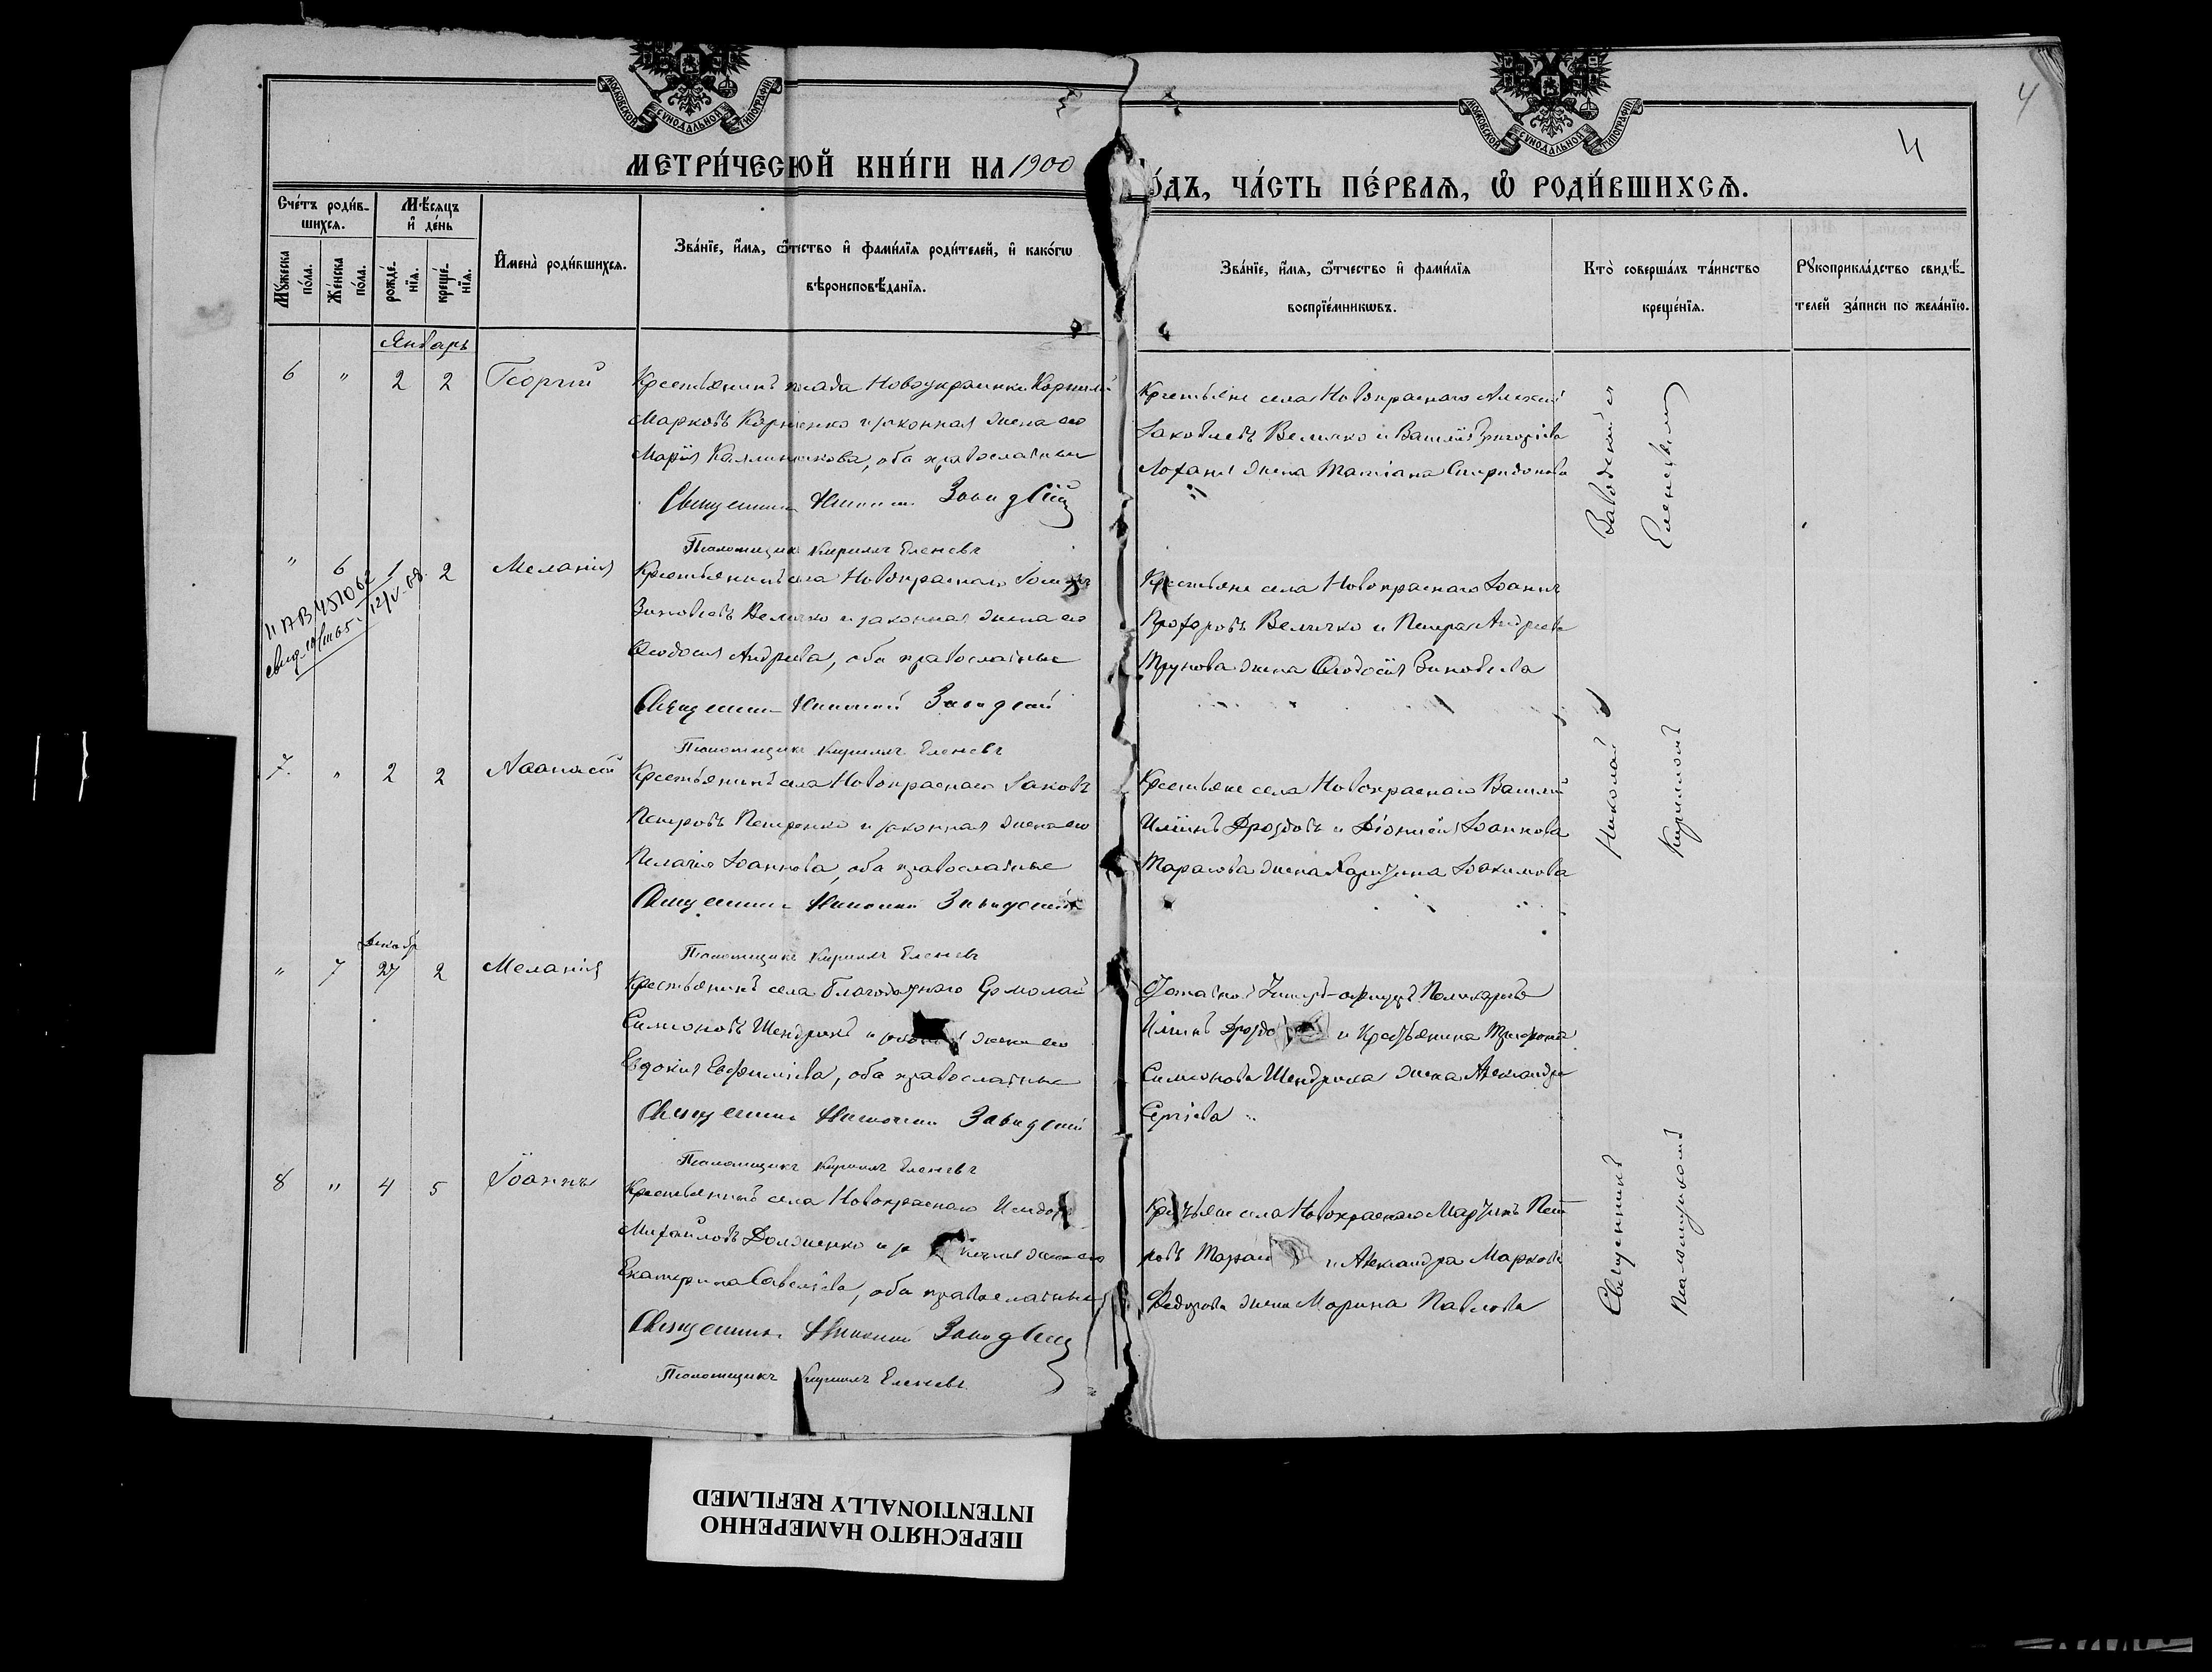 МОСКОВСКОЙ СѴНОДАЛЬНОЙ ТИПОГРАФІИ
МОСКОВСКОЙ СѴНОДАЛЬНОЙ ТИПОГРАФІИ
4
4
МЕТРИ́ЧЕСКОЙ КНИ́ГИ НА 1900
О́ДЪ, ЧА́СТЬ ПЕ́РВАѦ, Ѽ РОДИ́ВШИХСѦ.
Сче́тъ роди́в-
шихсѧ.
Мꙋ́жеска
по́ла.
Же́нска
по́ла.
Мѣ́сѧцъ
и҆ де́нь
рожде́-
нїѧ.
креще́-
нїѧ.
И҆мена̀ роди́вшихсѧ.
Зва́нїе, и҆́мѧ, ѻ҆́тчество и҆ фами́лїѧ роди́телей, и҆ како́гѡ
вѣроисповѣ́данїѧ.
Зва́нїе, и҆́мѧ, ѻ҆́тчество и҆ фами́лїѧ
воспрїе́мникѡвъ.
Кто̀ соверша́лъ та́инство
креще́нїѧ.
Рꙋкоприкла́дство свидѣ́-
телей за́писи по жела́нїю.
Январь
6 " 2 2 Георгій
Крестьянинъ посада Новоукраинки Корнилій
Марковъ Корніенко и законная жена его
Марія Каллиникова, оба православные
Священникъ Николай Заводскій
Псаломщикъ Кириллъ Еленевъ
Крестьяне села Новокраснаго Алексій
Іаковлевъ Величко и Василія Григоріева
жена Татіана Спиридонова
" 6 1 2 Меланія
Крестьянинъ села Новокраснаго
Зиновіевъ Величко и законная жена его
Ѳеодосія Андреева, оба православные
Священникъ Николай Заводскій
Псаломщикъ Кириллъ Еленевъ
Крестьяне села Новокраснаго Іоаннъ
Прохоровъ Величко и Петра Андреева
Трунова жена Ѳеодосія Зиновіева
7. " 2 2 Аѳанасій
Крестьянинъ села Новокраснаго Іаковъ
Петровъ Петренко и законная жена его
Пелагія Іоаннова, оба православные
Священникъ Николай Заводскій
Псаломщикъ Кириллъ Еленевъ
Крестьяне села Новокраснаго Василій
Иліинъ Дроздовъ и Діонисія Іоаннова
Тарасова жена Іоакимова
Декабр
" 7 27 2 Меланія
Крестьянинъ села Благодатнаго Ермолай
Симеоновъ Шендрикъ и жена его
Евдокія Евфиміева, оба православные
Священникъ Николай Заводскій
Псаломщикъ Кириллъ Еленевъ
Унтеръ-офицеръ Поликарпъ
Иліинъ Дроздо и Крестьянина Трифона
Симеонова Шендрика жена Александра
Сергіева
8 " 4 5 Іоаннъ
Крестьянинъ села Новокраснаго Исидоръ
Михайловъ Долженко и жена его
Екатерина Савеліева, оба православные
Священникъ Николай Заводскій
Псаломщикъ Кириллъ Еленевъ
Крестьяне села Новокраснаго Мартинъ Пет
ровъ Тарас и Александра Маркова
Федорова жена Марина Павлова
Священникъ Николай Заводской
Псаломщикомъ Кирилломъ Еленевымъ
ПЕРЕСНЯТО НАМЕРЕННО
INTENTIONALLY REFILMED